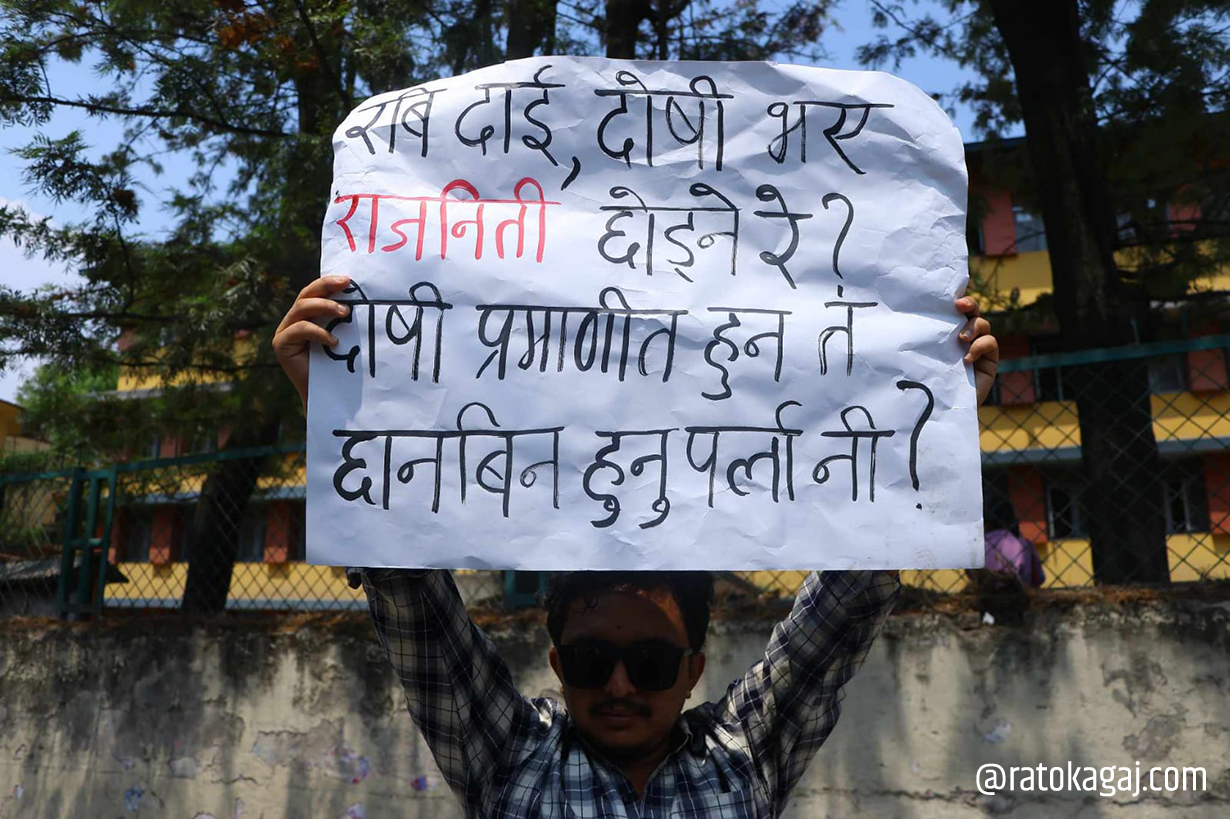 रबि दाई, दोषी भए
राजनिती छोड्ने रे?
दोषी प्रमाणीत हुन तं
छानबिन हुनु पर्ला नी?
@ratokagaj.com